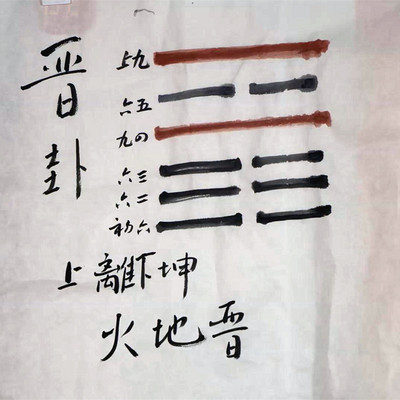 晋卦
上九
六五
九四
六三
六二
初六
上離下坤
火地晋